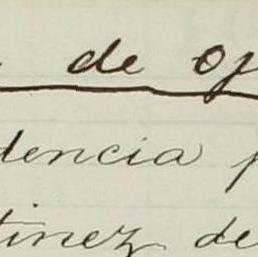 de oj
dencia
tinez de